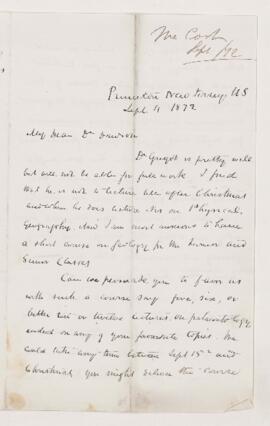 McCosh
Sept /72
Princeton New Jersey, US
Sept 4 1872
My Dear Dr Dawson
Dr Guyot is pretty well
but will not be able for full work. I find
that he is not to lecture till after Christmas
and when he does lecture it is on Physical
Geography. And I am most anxious to have
a short course on Geology for the Junior and
Senior Classes
Can we persuade you to favor us
with such a course say five, six, or
better ten or twelve lectures on palaeontology
and on any of your favourite topics. We
could take any time between Sept 15th and
Christmas. You might deliver the course